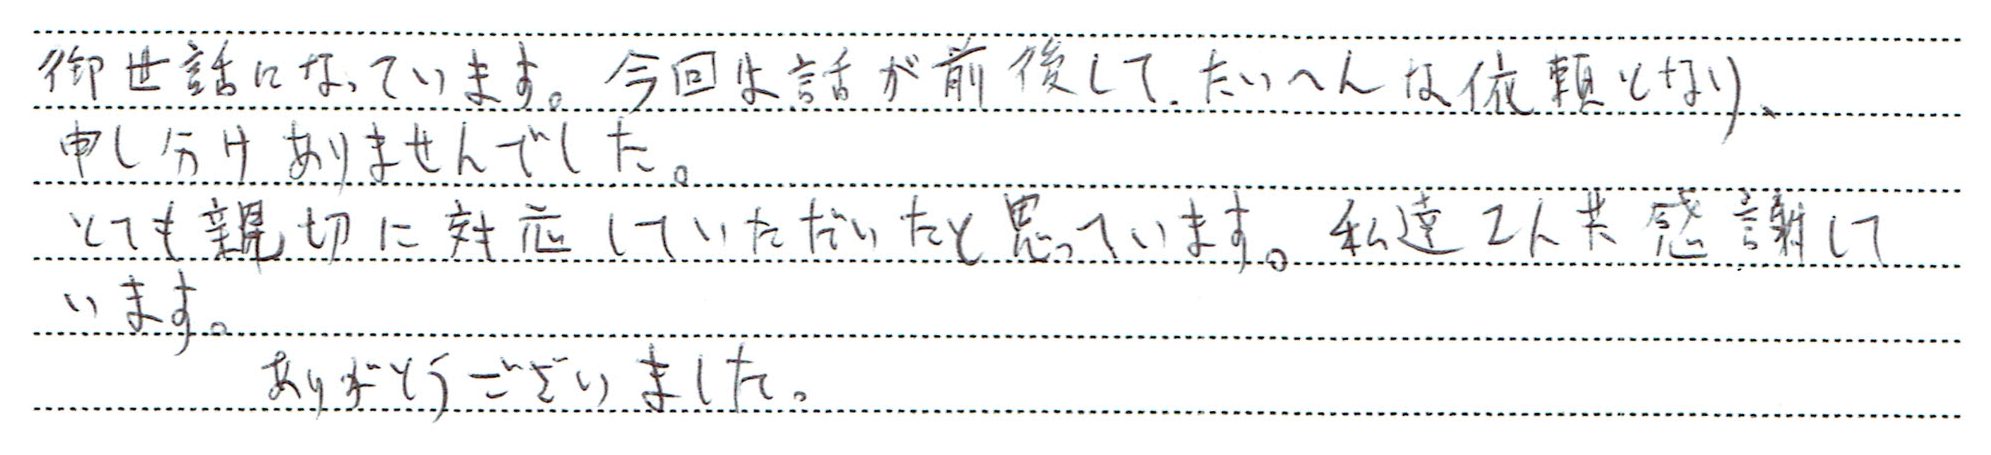 御世話になっています。今回は話が前後して、たいへんな依頼となり、
申し分けありませんでした。
とても親切に対応していただいたと思っています。私達2人共感謝して
います。
ありがとうございました。